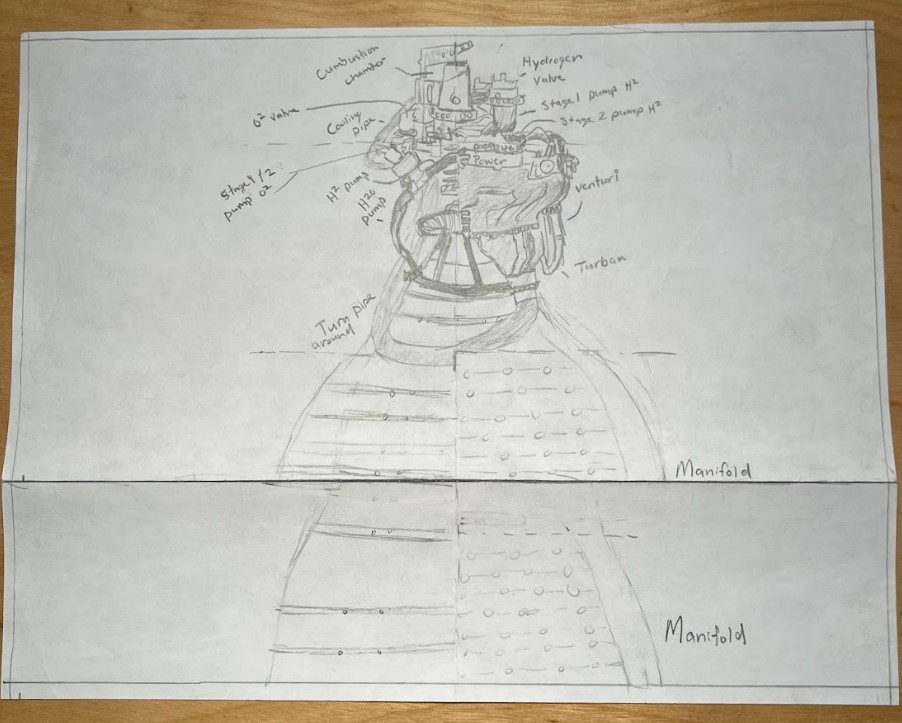 Cumbustion
chamber
Hydrogen
Valve
O² valve
Stage 1 pump H²
Stage 2 pump H²
Cooling
pipe
Power
Stage 1/2
pump O²
H² pump
H20
pump
venturi
Turban
Turn pipe
around
Manifold
Manifold